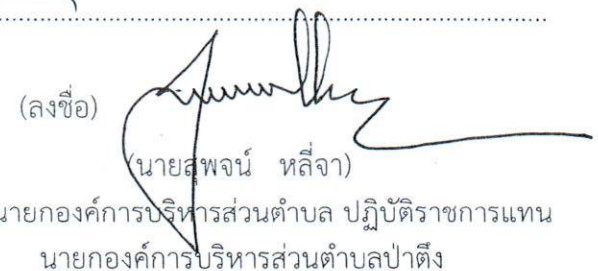 (ลงชื่อ)
(นายสุพจน์ หลี่จา)
นายกองค์การบริหารส่วนตำบล ปฏิบัติราชการแทน
นายกองค์การบริหารส่วนตำบลป่าตึง